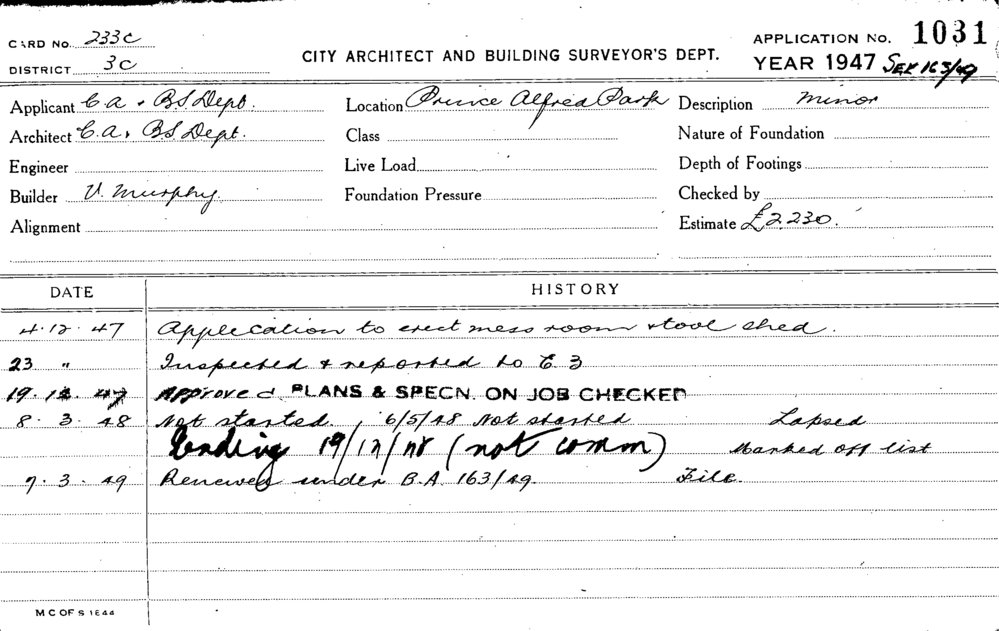 CARD No. 233C
DISTRICT 3C
CITY ARCHITECT AND BUILDING SURVEYOR'S DEPT.
APPLICATION No. 1031
YEAR 1947 SEE 163/49
Applicant C.A. & BS Dept. Location Prince Alfred Park Description minor
Architect C.A. & BS Dept. Class Nature of Foundation
Engineer Live Load Depth of Footings
Builder V. Murphy. Foundation Pressure Checked by
Alignment Estimate £2,230.
DATE HISTORY
4.12.47 Application to erect mess room & tool shed.
23 " Inspected & reported to E3
19.12.47 Approved PLANS & SPECN. ON JOB CHECKED
8.3.48 Not started, 6/5/48 Not started Lapsed
Pending 19/12/48 (not comm) Marked off list
7.3.49 Renewed under B.A. 163/49. File.
M C OF S 1844